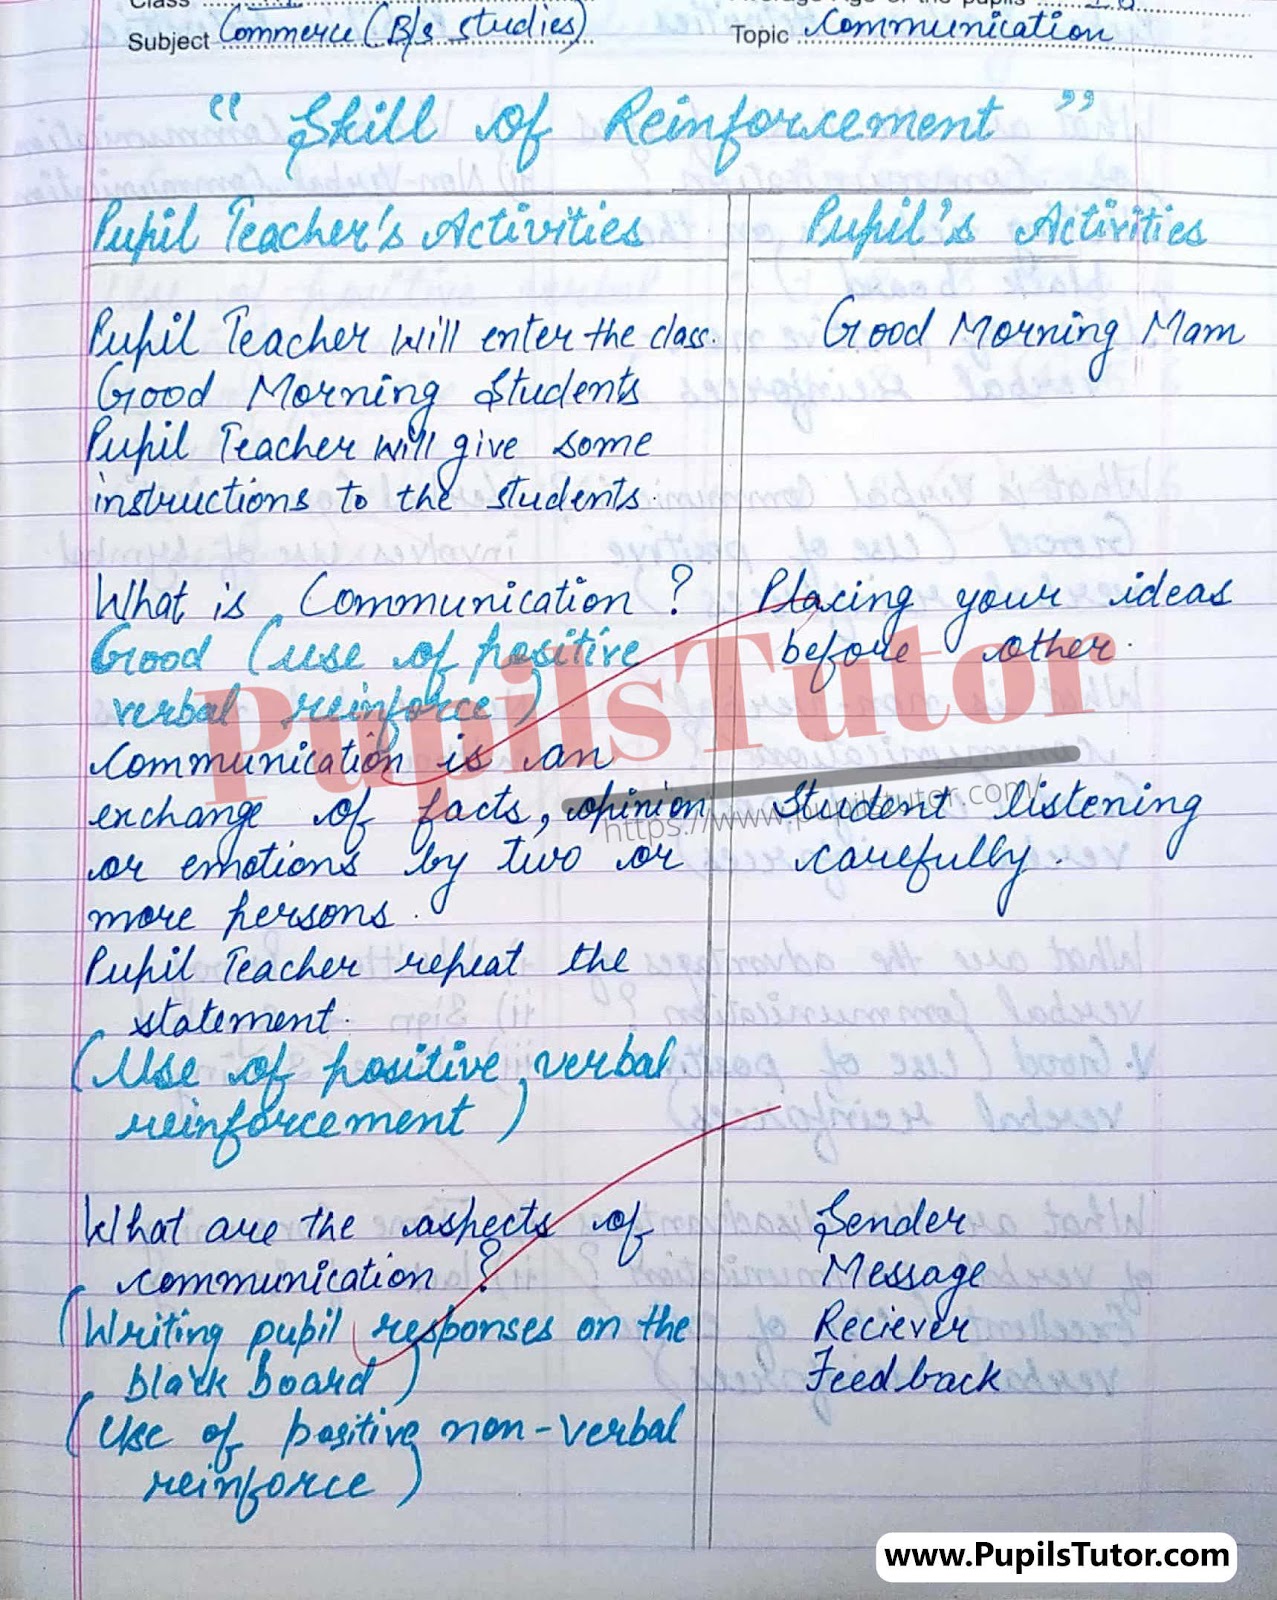 Class
Average Age of the pupils
Subject Commerce (B/s studies)
Topic Communication
" Skill of Reinforcement "
Pupil Teacher's Activities
Pupil's Activities
Pupil Teacher will enter the class.
Good Morning Mam
Good Morning Students
Pupil Teacher will give some
instructions to the students.
What is Communication ?
Placing your ideas
Good (use of positive
before other.
verbal reinforce)
Communication is an
exchange of facts, opinion
Student listening
or emotions by two or
carefully.
more persons.
Pupil Teacher repeat the
statement.
(Use of positive verbal
reinforcement)
What are the aspects of
Sender
communication ?
Message
(Writing pupil responses on the
Reciever
black board)
Feedback
(Use of positive non-verbal
reinforce)
PupilsTutor
https://www.pupilstutor.com/
www.PupilsTutor.com